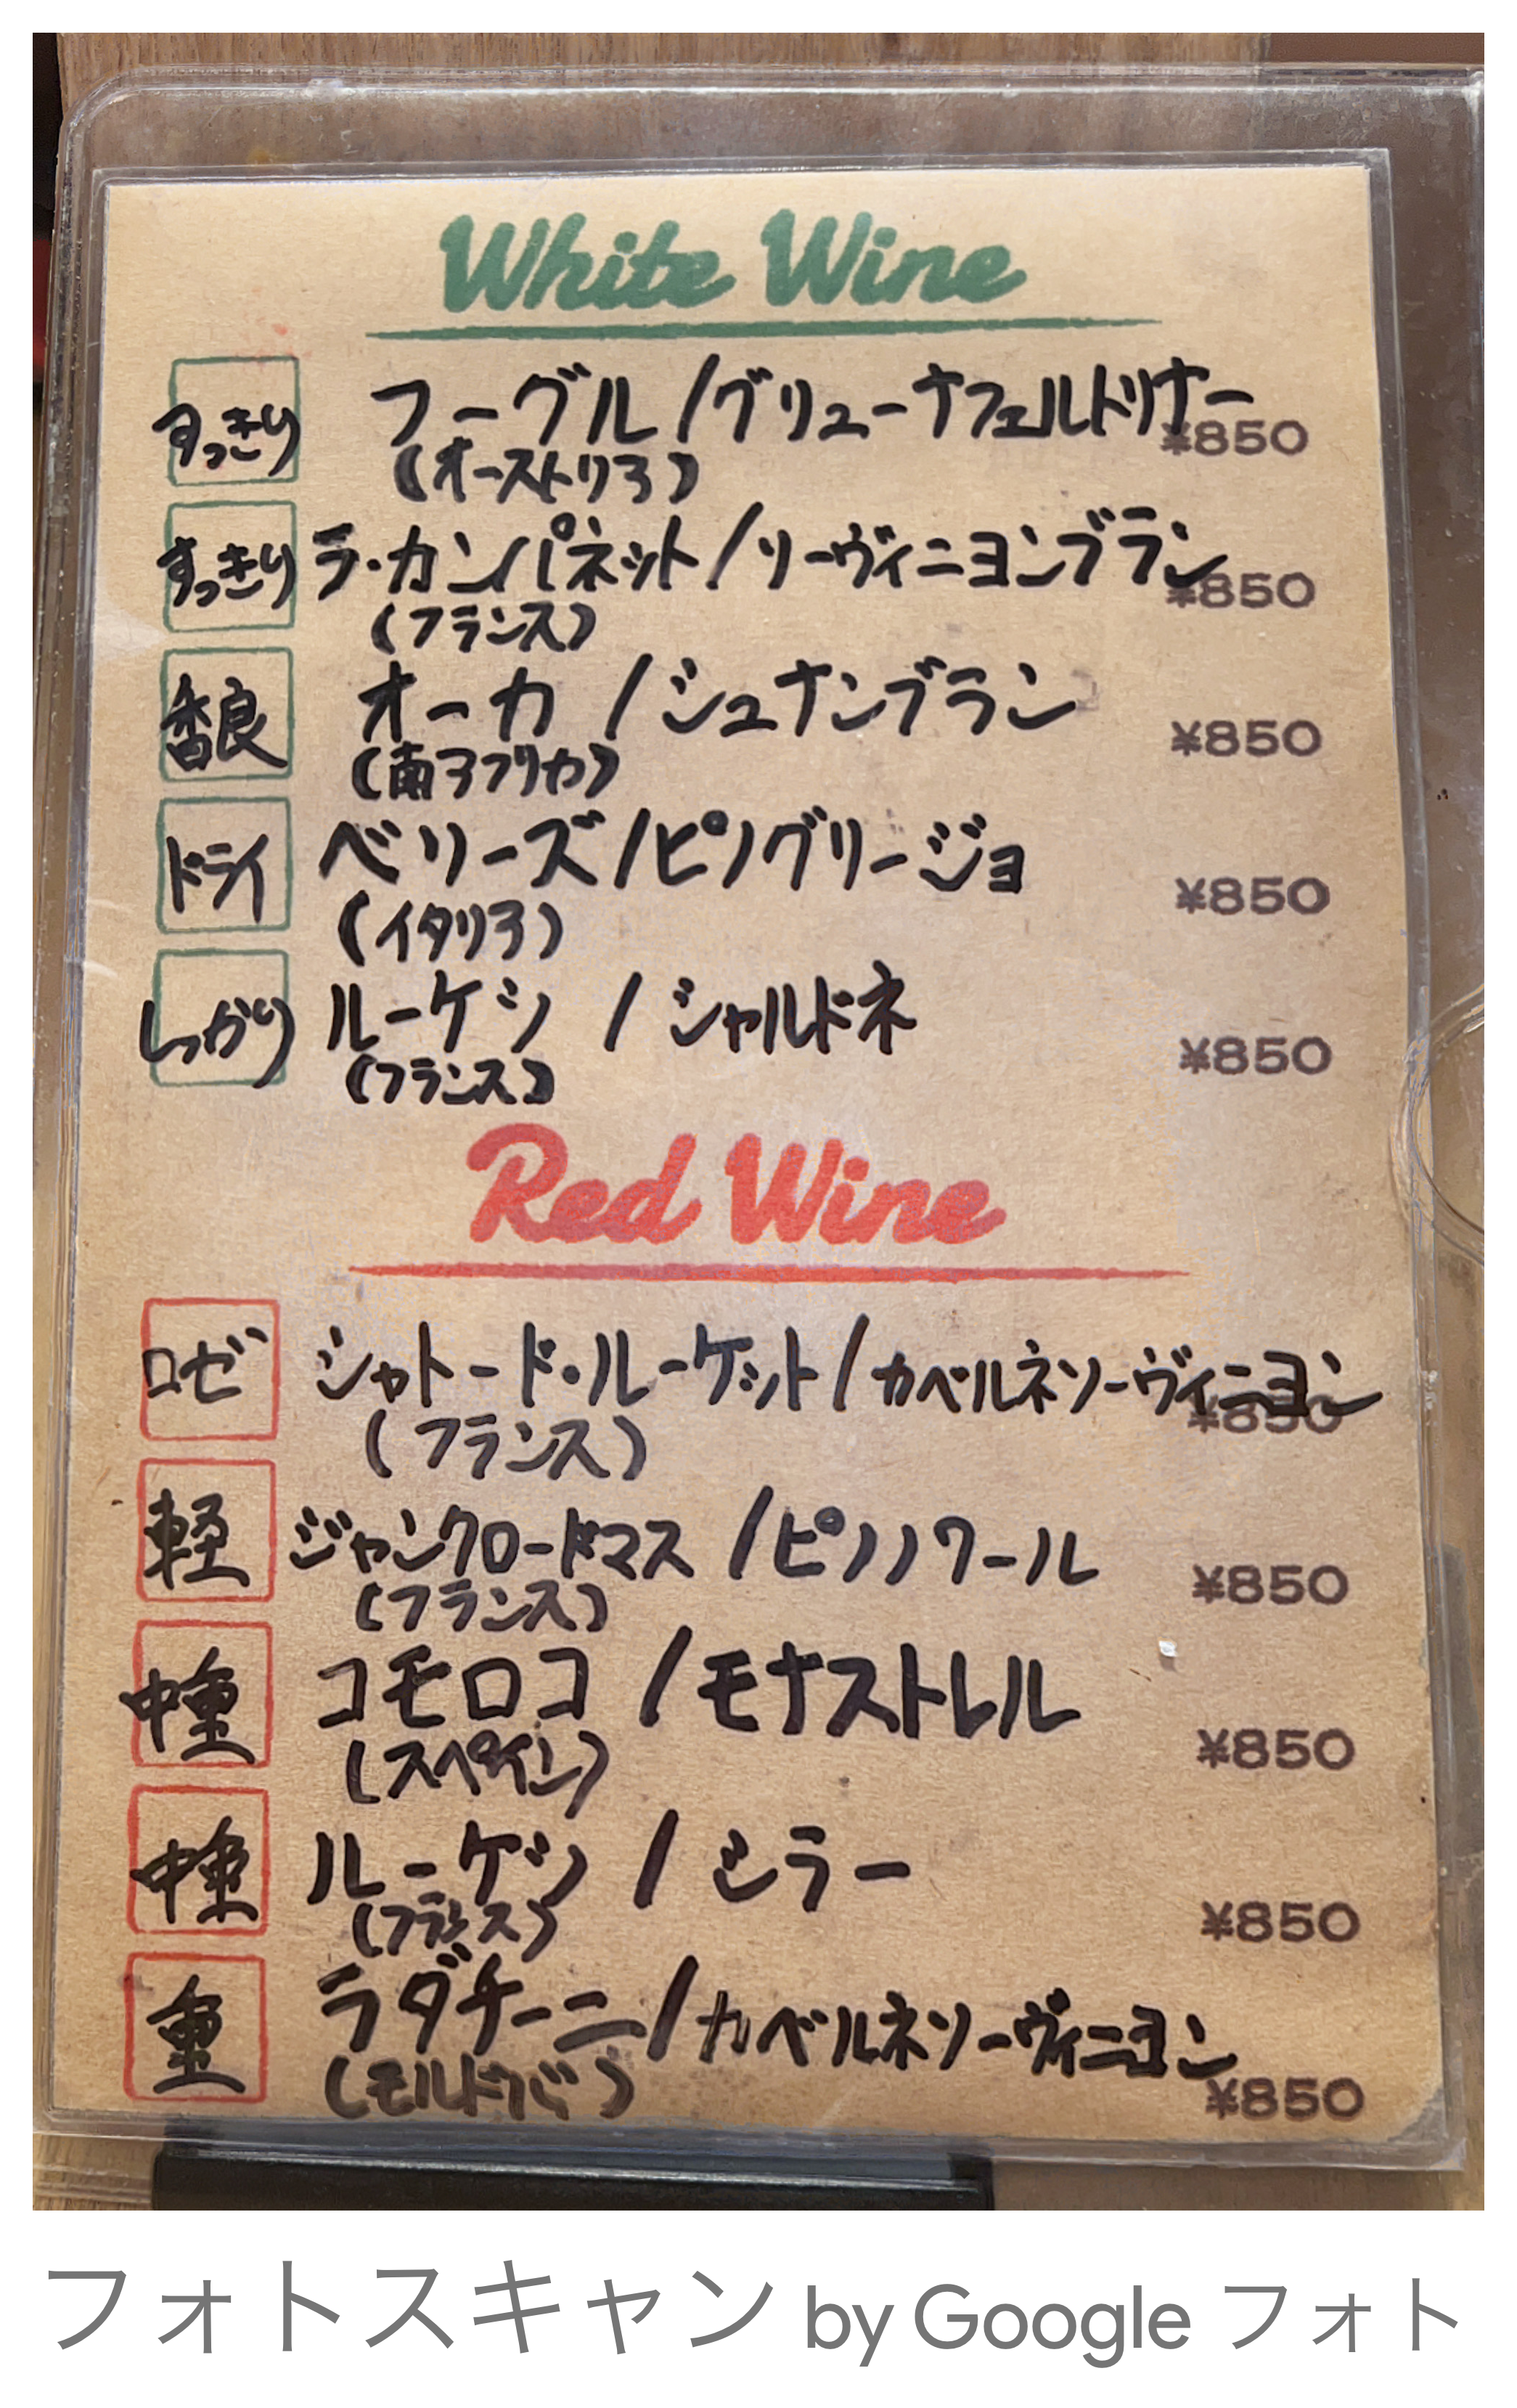 White Wine
すっきり フーグル/グリューナフェルトリナー ¥850
(オーストリア)
すっきり ラ・カンパネット/ソーヴィニヨンブラン ¥850
(フランス)
香良 オーカ/シュナンブラン ¥850
(南アフリカ)
ドライ ベリーズ/ピノグリージョ ¥850
(イタリア)
しっかり ルーケン/シャルドネ ¥850
(フランス)
Red Wine
ロゼ シャトード・ルーケット/カベルネソーヴィニヨン ¥850
(フランス)
軽 ジャンクロードマス/ピノノワール ¥850
(フランス)
中重 コモロコ/モナストレル ¥850
(スペイン)
中重 ルーケン/シラー ¥850
(フランス)
重 ラダチーニ/カベルネソーヴィニヨン ¥850
(モルドバ)
フォトスキャン by Google フォト